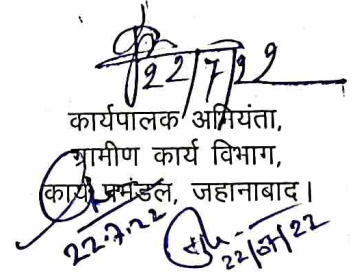 22/7/22
कार्यपालक अभियंता,
ग्रामीण कार्य विभाग,
कार्य प्रमंडल, जहानाबाद।
22.7.22
22/07/22